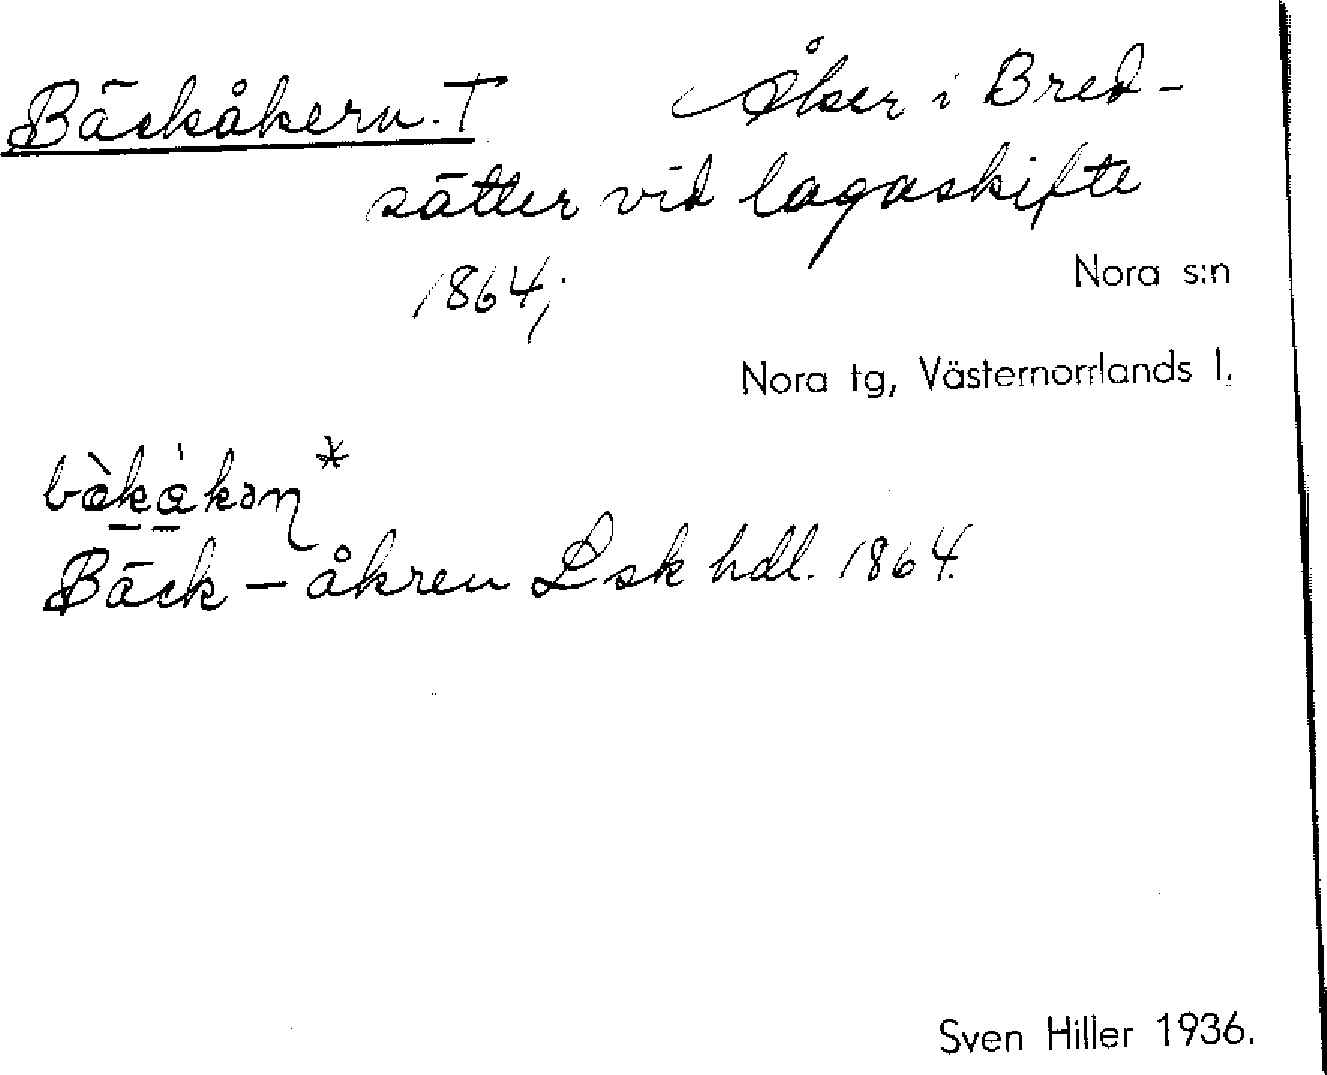 Bäckåkern. T Åker i Bred-
sätter vid lagaskifte
1864;
Nora s:n
Nora tg, Västernorrlands l.
Bäck - åkren Lsk hdl. 1864.
Sven Hiller 1936.